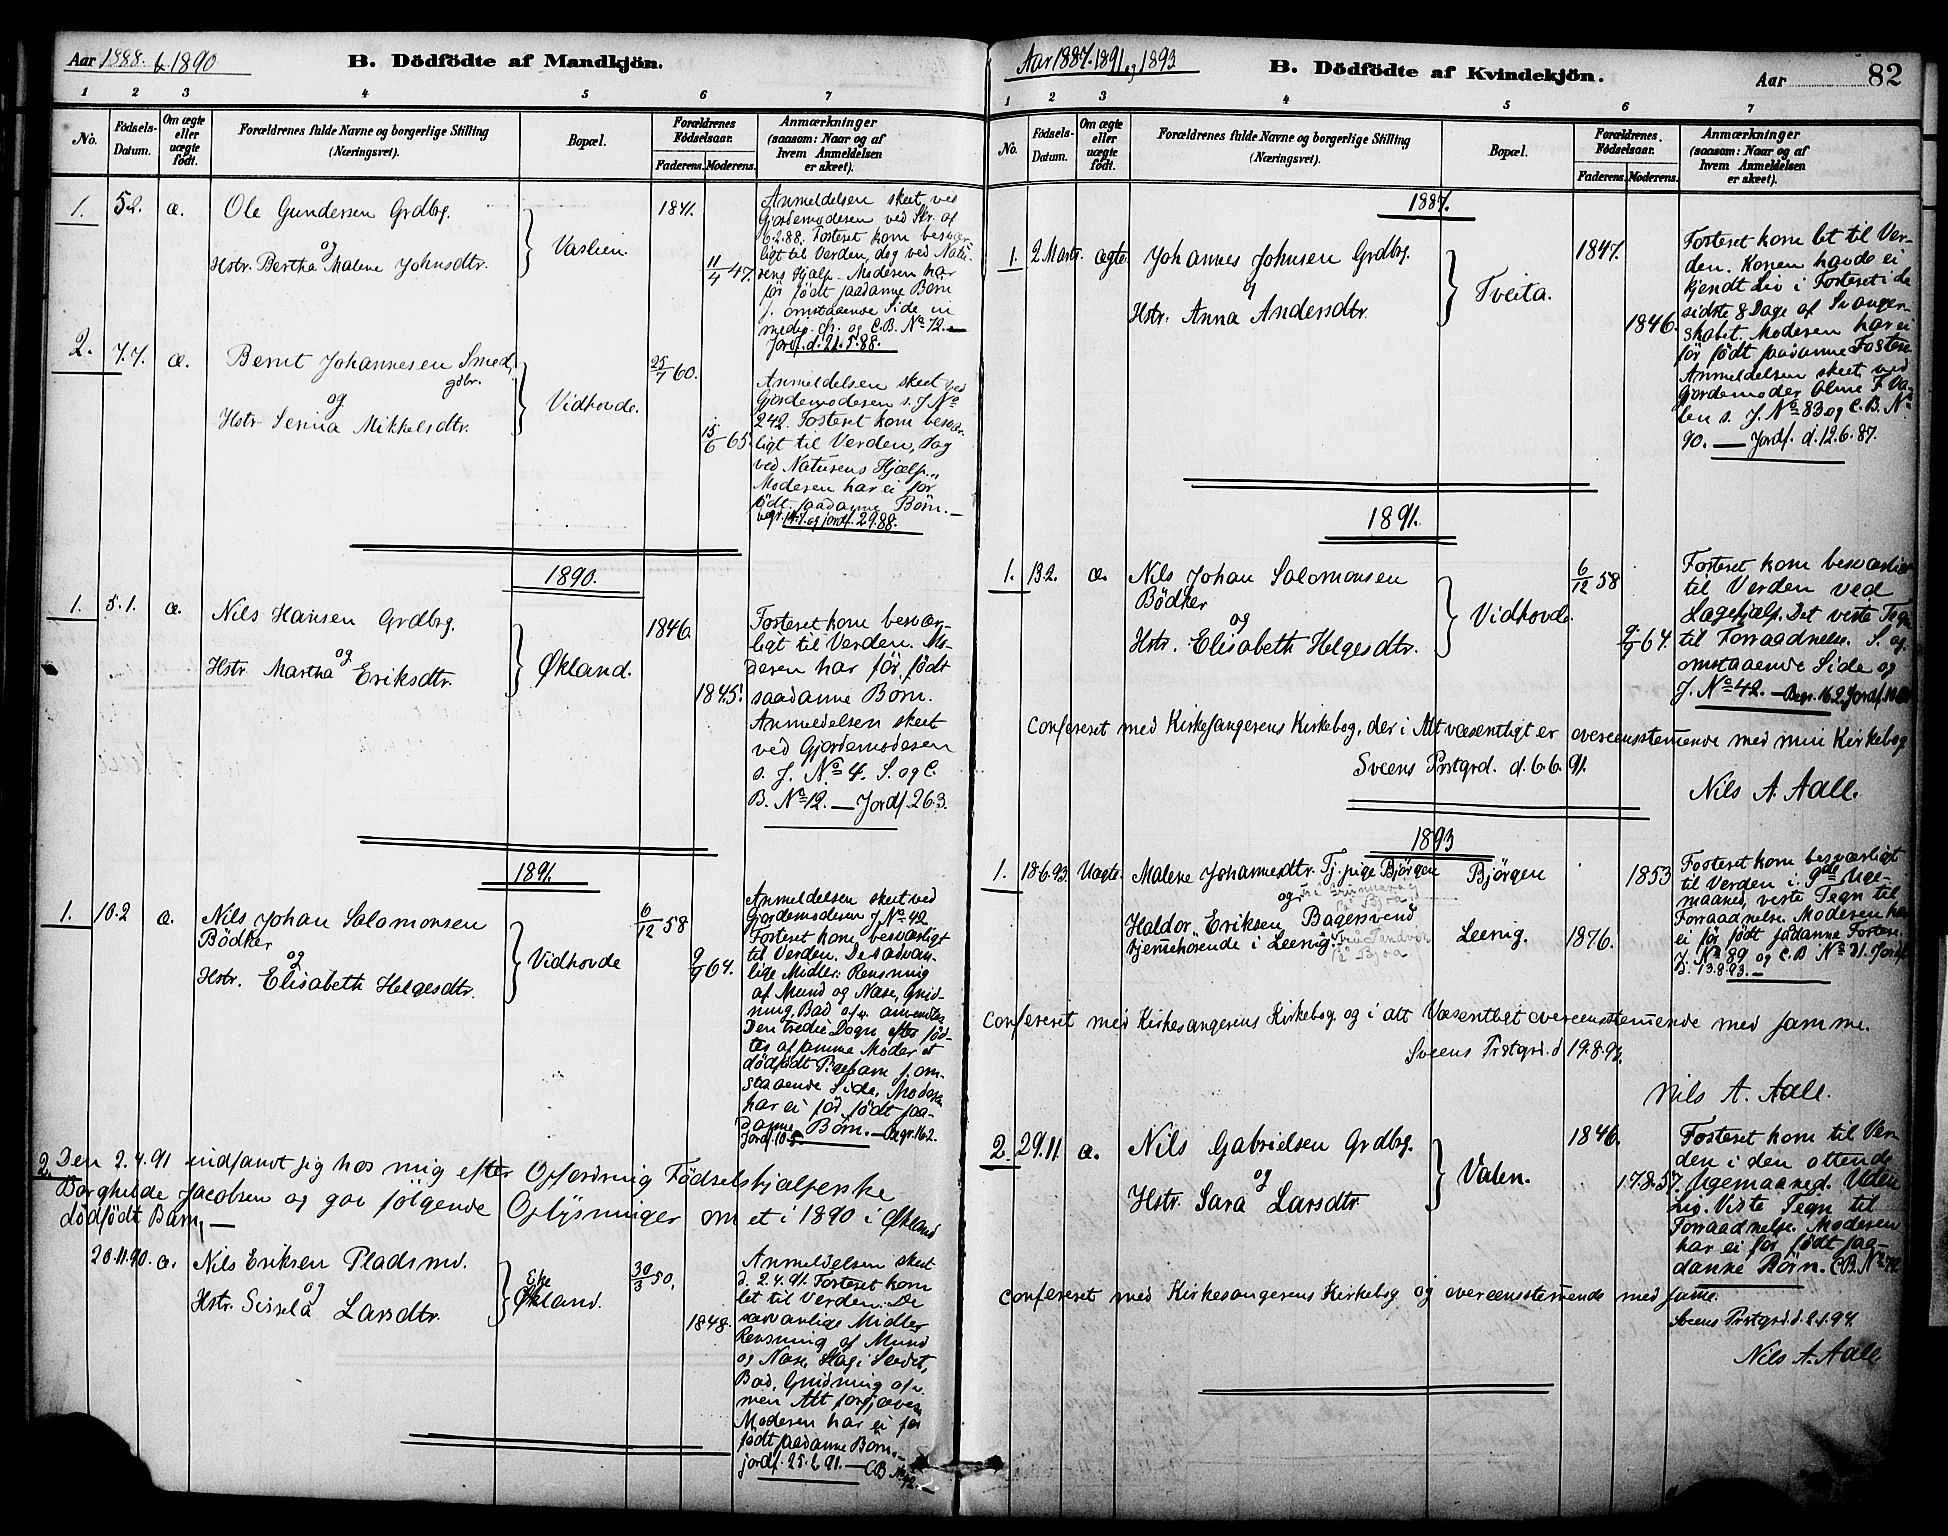 Aar 1888. & 1890
B. Dödfödte af Mandkjön.
1 2 3 4 5 6 7
No.
Födsels-Datum.
Om ægte eller uægte födt.
Forældrenes fulde Navne og borgerlige Stilling (Næringsvei).
Bopæl.
Forældrenes Födselsaar.
Faderens. Moderens.
Anmærkninger (saasom: Naar og af hvem Anmeldelsen er skeet).
1. 5.2. æ. Ole Gundersen Grdbrg. 1841.
og
Hstr. Bertha Malene Johnsdtr. Vaslien. 11/4 47.
Anmeldelsen skeet ved
Gjordemoderen ved Skr. af
6.2.88. Fosteret kom besvær-
ligt til Verden, dog ved Natu-
rens Hjælp. Moderen har
før født saadanne Børn
s. omstaaende Side in
medio. og C.B. No 12.
Jordf. d. 21.5.88.
2. 7.7. æ. Bernt Johannesen Smed, 25/7 60.
gdbr.
og
Hstr. Serina Mikkelsdtr. Vidhovde. 15/6 65.
Anmeldelsen skeet ved
Gjordemoderen s. J. No
242. Fosteret kom besvær-
ligt til Verden, dog
ved Naturens Hjælp.
Moderen har ei før
født saadanne Børn.
og jordf. 2.9.88.
1890.
1. 5.1. æ. Nils Hansen Grdbrg. 1846.
og
Hstr. Martha Eriksdtr. Økland. 1845.
Fosteret kom besvær-
ligt til Verden. Mo-
deren har før født
saadanne Børn.
Anmeldelsen skeet
ved Gjordemoderen
s. J. No 4. S. og C.
B. No 12. — Jordf. 26.3.
1891.
1. 10.2 æ. Nils Johan Salomonsen 6/12 58
Bödker
og
Hstr. Elisabeth Helgesdtr. Vidhovde 9/9 64.
Anmeldelsen skeet ved
Gjordemoderen J No 42.
Fosteret kom besværligt
til Verden. De sædvan-
lige Midler: Rensning
af Mund og Næse, Gnid-
ning, Bad ofv. anvendtes
Den tredie Dogn efter fød-
tes af samme Moder et
dödfödt Pigebarn s. om-
staaende Side. Moderen
har ei før født saa-
danne Børn. — Begr. 16.2.
Jordf. 10.5.
2. Den 2.4.91 indfandt sig hos mig efter Opfordring Födselshjælperske
Borghilde Jacobsen og gav følgende Oplysninger om et i 1890 i Økland
dödfödt Barn. —
20.11.90. æ. Nils Eriksen Pladsmd. 30/3 50.
og
Hstr. Sissela Larsdtr. Eke Økland. 1848.
Anmeldelsen skeet
d. 2.4.91. Fosteret kom
let til Verden. De
sædvanlige Midler
Rensning af Mund
og Næse, Slag i Sædet,
Bad, Gnidning ofv.
men Alt forgjæves
Moderen har ei før
født saadanne Børn.
jordf. 25.6.91. — CB No 12.
Aar 1887. 1891 og 1893
B. Dödfödte af Kvindekjön.
Aar
82
1 2 3 4 5 6 7
No.
Födsels-Datum.
Om ægte eller uægte födt.
Forældrenes fulde Navne og borgerlige Stilling (Næringsvei).
Bopæl.
Forældrenes Födselsaar.
Faderens. Moderens.
Anmærkninger (saasom: Naar og af hvem Anmeldelsen er skeet).
1887.
1. 2 Marts. ægte. Johannes Johnsen Grdbg. 1847.
og
Hstr. Anna Andersdtr. Tveita. 1846.
Fosteret kom let til Ver-
den. Konen havde ei
kjendt Liv i Fosteret i de
sidste 8 Dage af Svanger-
skabet. Moderen har ei
før født saadanne Fostere
Anmeldelsen skeet ved
Gjordemoder Oline T. Va-
len s. J. No 83 og C.B. No
90. — Jordf. d. 12.6.87.
1891.
1. 13.2. æ. Nils Johan Salomonsen 6/12 58
Bödker
og
Hstr. Elisabeth Helgesdtr. Vidhovde. 9/9 64.
Fosteret kom besværligt
til Verden ved
Lægehjælp. Det viste Tegn
til Forraadnelse. S. og
omstaaende Side og
J. No 42. — Begr. 16.2. Jordf.
Confereret med Kirkesangerens Kirkebog, der i Alt væsentligt er overeensstemende med min Kirkebog
Sveens Prstgrd. d. 6.6.91.
Nils A. Aall.
1893
1. 18.6.93. Uægte. Malene Johannesdtr. Tj. pige Bjørgen Bjørgen 1853
og
Haldor Eriksen Bagersvend
hjemehörende i Leenig. Leenig. 1876.
Fosteret kom besværligt
til Verden i 9de Uge-
maaned, viste Tegn til
Forraadnelse. Moderen har
ei før født saadanne Fostere.
J. No 89 og C.B No 21. Jordf.
d. 13.8.93. —
Confereret med Kirkesangerens Kirkebog og i alt Væsentligt overeensstemende med samme.
Sveens Prstgrd. d 19.8.93.
Nils A. Aall.
2. 29.11. æ. Nils Gabrielsen Grdbg. 1846.
og
Hstr. Sara Larsdtr. Valen. 17.8.57.
Fosteret kom til Ver
den i den ottende
Ugemaaned. Uden
Liv. Viste Tegn til
Forraadnelse. Moderen
har ei før født saa-
danne Børn. C.B. No
Confereret med Kirkesangerens Kirkebog og overeensstemende med same.
Sveens Prstgrd. d. 2.1.94.
Nils A. Aall